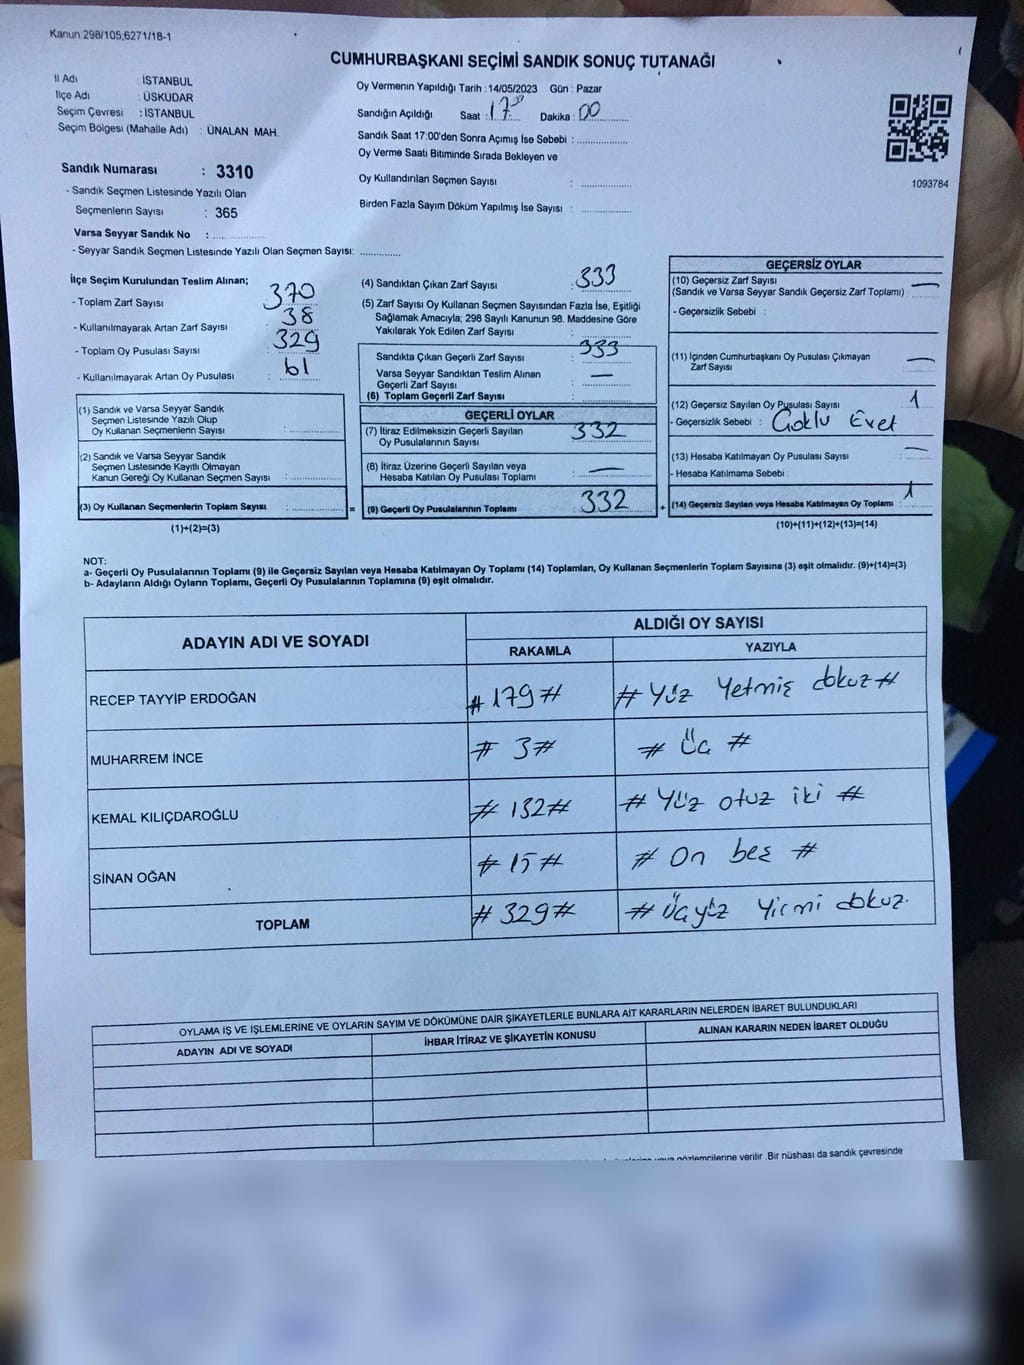 Kanun:298/105,6271/1B-1
CUMHURBAŞKANI SEÇİMİ SANDIK SONUÇ TUTANAĞI
İl Adı : İSTANBUL
İlçe Adı : ÜSKÜDAR
Seçim Çevresi : İSTANBUL
Seçim Bölgesi (Mahalle Adı) : ÜNALAN MAH.
Oy Vermenin Yapıldığı Tarih : 14/05/2023 Gün : Pazar
Sandığın Açıldığı Saat : 17 Dakika : 00
Sandık Saat 17:00'den Sonra Açımış İse Sebebi :
Oy Verme Saati Bitiminde Sırada Bekleyen ve
Oy Kullandırılan Seçmen Sayısı :
Birden Fazla Sayım Döküm Yapılmış İse Sayısı :
1093784
Sandık Numarası : 3310
- Sandık Seçmen Listesinde Yazılı Olan
Seçmenlerin Sayısı : 365
Varsa Seyyar Sandık No :
- Seyyar Sandık Seçmen Listesinde Yazılı Olan Seçmen Sayısı:
İlçe Seçim Kurulundan Teslim Alınan;
- Toplam Zarf Sayısı : 370
- Kullanılmayarak Artan Zarf Sayısı : 38
- Toplam Oy Pusulası Sayısı : 329
- Kullanılmayarak Artan Oy Pusulası : 61
(1) Sandık ve Varsa Seyyar Sandık
Seçmen Listesinde Yazılı Olup
Oy Kullanan Seçmenlerin Sayısı :
(2) Sandık ve Varsa Seyyar Sandık
Seçmen Listesinde Kayıtlı Olmayan
Kanun Gereği Oy Kullanan Seçmen Sayısı :
(3) Oy Kullanan Seçmenlerin Toplam Sayısı : =
(1)+(2)=(3)
(4) Sandıktan Çıkan Zarf Sayısı : 333
(5) Zarf Sayısı Oy Kullanan Seçmen Sayısından Fazla İse, Eşitliği
Sağlamak Amacıyla; 298 Sayılı Kanunun 98. Maddesine Göre
Yakılarak Yok Edilen Zarf Sayısı :
Sandıkta Çıkan Geçerli Zarf Sayısı : 333
Varsa Seyyar Sandıktan Teslim Alınan
Geçerli Zarf Sayısı : —
(6) Toplam Geçerli Zarf Sayısı :
GEÇERLİ OYLAR
(7) İtiraz Edilmeksizin Geçerli Sayılan
Oy Pusulalarının Sayısı : 332
(8) İtiraz Üzerine Geçerli Sayılan veya
Hesaba Katılan Oy Pusulası Toplamı : —
(9) Geçerli Oy Pusulalarının Toplamı : 332 +
GEÇERSİZ OYLAR
(10) Geçersiz Zarf Sayısı
(Sandık ve Varsa Seyyar Sandık Geçersiz Zarf Toplamı) : —
- Geçersizlik Sebebi :
(11) İçinden Cumhurbaşkanı Oy Pusulası Çıkmayan
Zarf Sayısı : —
(12) Geçersiz Sayılan Oy Pusulası Sayısı : 1
- Geçersizlik Sebebi : Çoklu Evet
(13) Hesaba Katılmayan Oy Pusulası Sayısı : —
- Hesaba Katılmama Sebebi :
(14) Geçersiz Sayılan veya Hesaba Katılmayan Oy Toplamı : 1
(10)+(11)+(12)+(13)=(14)
NOT:
a- Geçerli Oy Pusulalarının Toplamı (9) ile Geçersiz Sayılan veya Hesaba Katılmayan Oy Toplamı (14) Toplamları, Oy Kullanan Seçmenlerin Toplam Sayısına (3) eşit olmalıdır. (9)+(14)=(3)
b- Adayların Aldığı Oyların Toplamı, Geçerli Oy Pusulalarının Toplamına (9) eşit olmalıdır.
ADAYIN ADI VE SOYADI
ALDIĞI OY SAYISI
RAKAMLA YAZIYLA
RECEP TAYYİP ERDOĞAN #179# # Yüz Yetmiş dokuz #
MUHARREM İNCE # 3# # Üç #
KEMAL KILIÇDAROĞLU # 132# # Yüz otuz iki #
SİNAN OĞAN # 15 # # On beş #
TOPLAM # 329# # Üçyüz Yirmi dokuz
OYLAMA İŞ VE İŞLEMLERİNE VE OYLARIN SAYIM VE DÖKÜMÜNE DAİR ŞİKAYETLERLE BUNLARA AİT KARARLARIN NELERDEN İBARET BULUNDUKLARI
ADAYIN ADI VE SOYADI İHBAR İTİRAZ VE ŞİKAYETİN KONUSU ALINAN KARARIN NEDEN İBARET OLDUĞU
gözlemcilerine verilir .Bir nüshası da sandık çevresinde